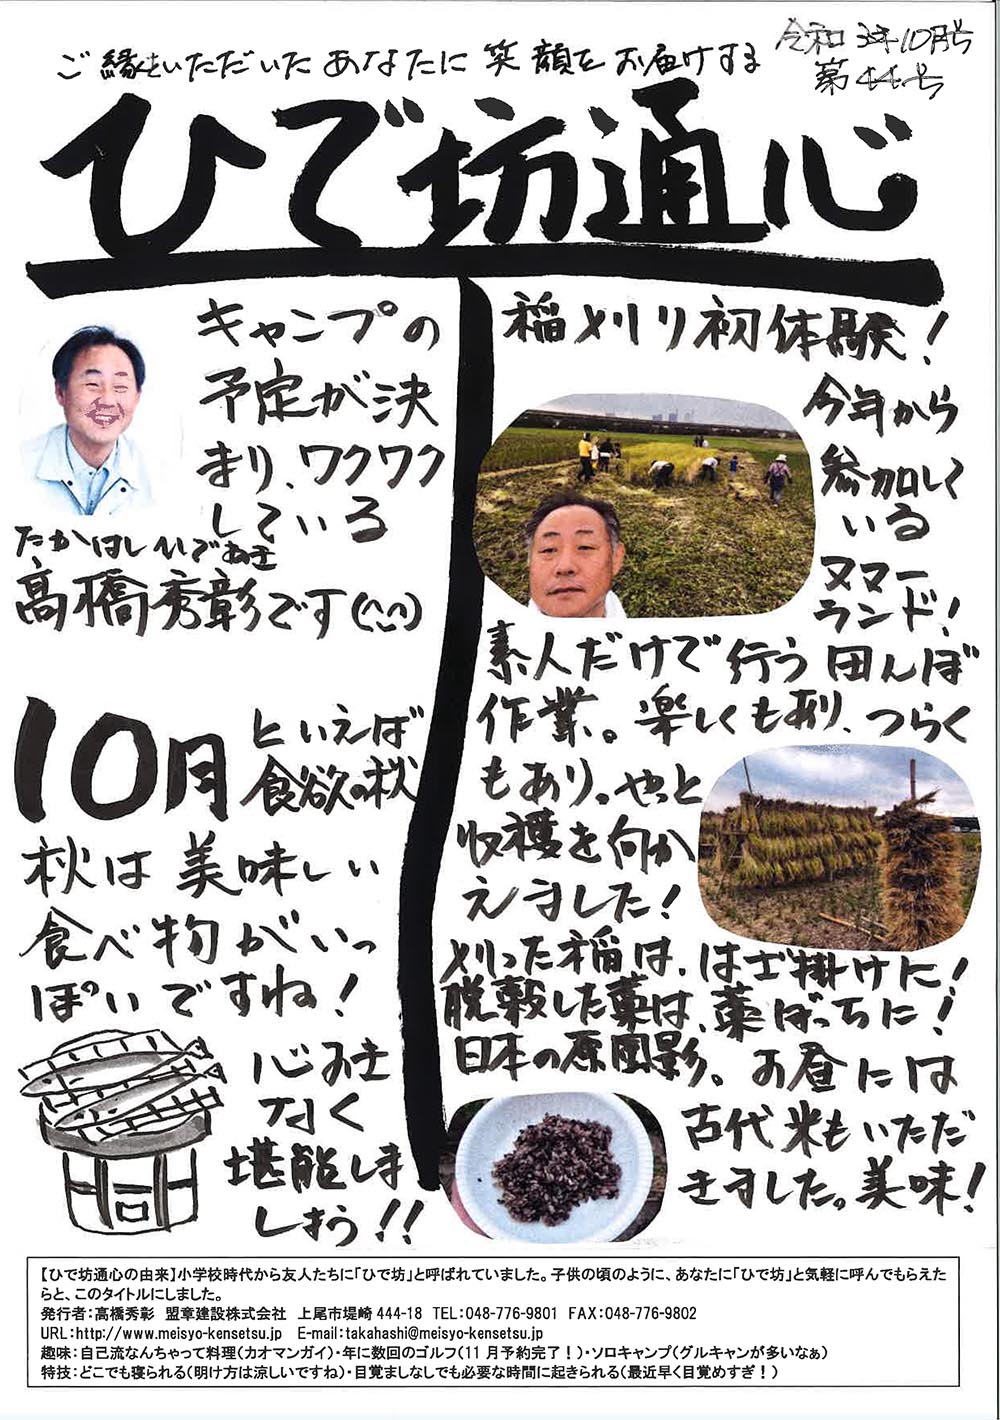 令和3年10月号
第44号
ご縁をいただいたあなたに笑顔をお届けする
ひで坊通心
キャンプの
予定が決
まり、ワクワク
している
たかはしひであき
髙橋秀彰です(^^)
10月
といえば
食欲の秋
秋は美味しい
食べ物がいっ
ぱいですね!
心おき
なく
堪能しま
しょう!!
稲刈り初体験!
今年から
参加して
いる
ヌマー
ランド!
素人だけで行う田んぼ
作業。楽しくもあり、つらく
もあり。やっと
収穫を向か
えました!
刈った稲は、はざ掛けに!
脱穀した藁は、藁ぼっちに!
日本の原風影。お昼には
古代米もいただ
きました。美味!
【ひで坊通心の由来】小学校時代から友人たちに「ひで坊」と呼ばれていました。子供の頃のように、あなたに「ひで坊」と気軽に呼んでもらえた
らと、このタイトルにしました。
発行者:髙橋秀彰 盟章建設株式会社 上尾市堤崎444-18 TEL:048-776-9801 FAX:048-776-9802
URL:http://www.meisyo-kensetsu.jp E-mail:takahashi@meisyo-kensetsu.jp
趣味:自己流なんちゃって料理(カオマンガイ)・年に数回のゴルフ(11月予約完了!)・ソロキャンプ(グルキャンが多いなぁ)
特技:どこでも寝られる(明け方は涼しいですね)・目覚ましなしでも必要な時間に起きられる(最近早く目覚めすぎ!)